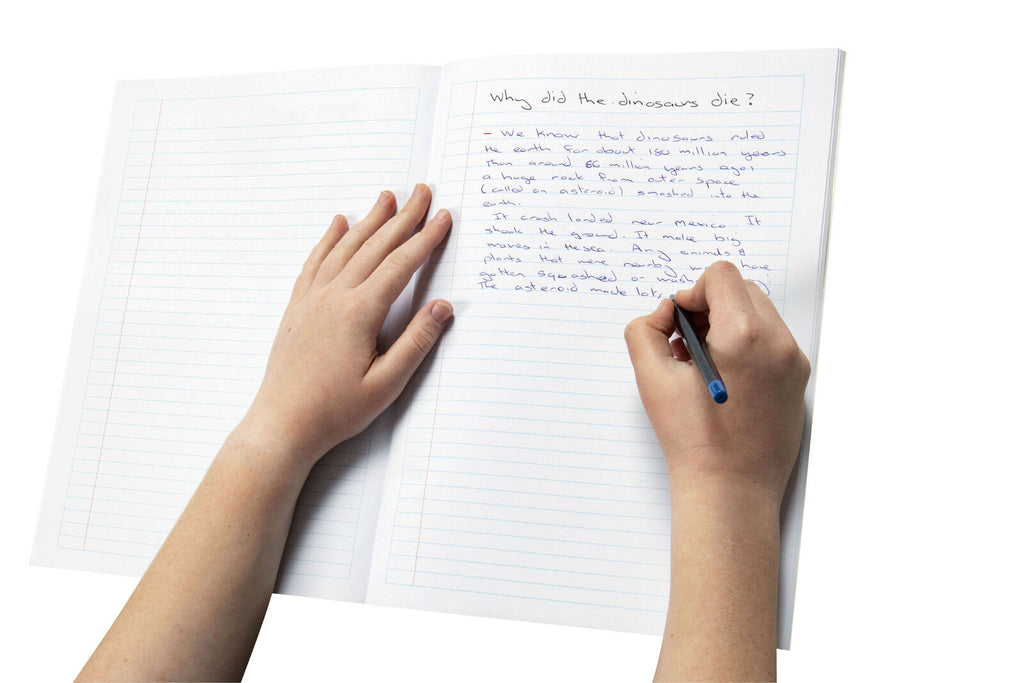 Why did the dinosaurs die?
- We know that dinosaurs ruled
the earth for about 180 million years
Then around 66 million years ago,
a huge rock from outer space
(called an asteroid) smashed into the
earth.
It crash landed near Mexico. It
shook the ground. It make big
waves in the sea. Any animals &
plants that were nearby have
gotten squashed or
The asteroid made lots